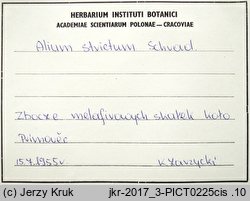 HERBARIUM INSTITUTI BOTANICI
ACADEMIAE SCIENTIARUM POLONAE — CRACOVIAE
Alium strictum Schrad.
Zbocze melafirowych skałek koło
15.7.1955r. K. Zarzycki
(c) Jerzy Kruk jkr-2017_3-PICT0225cis .10